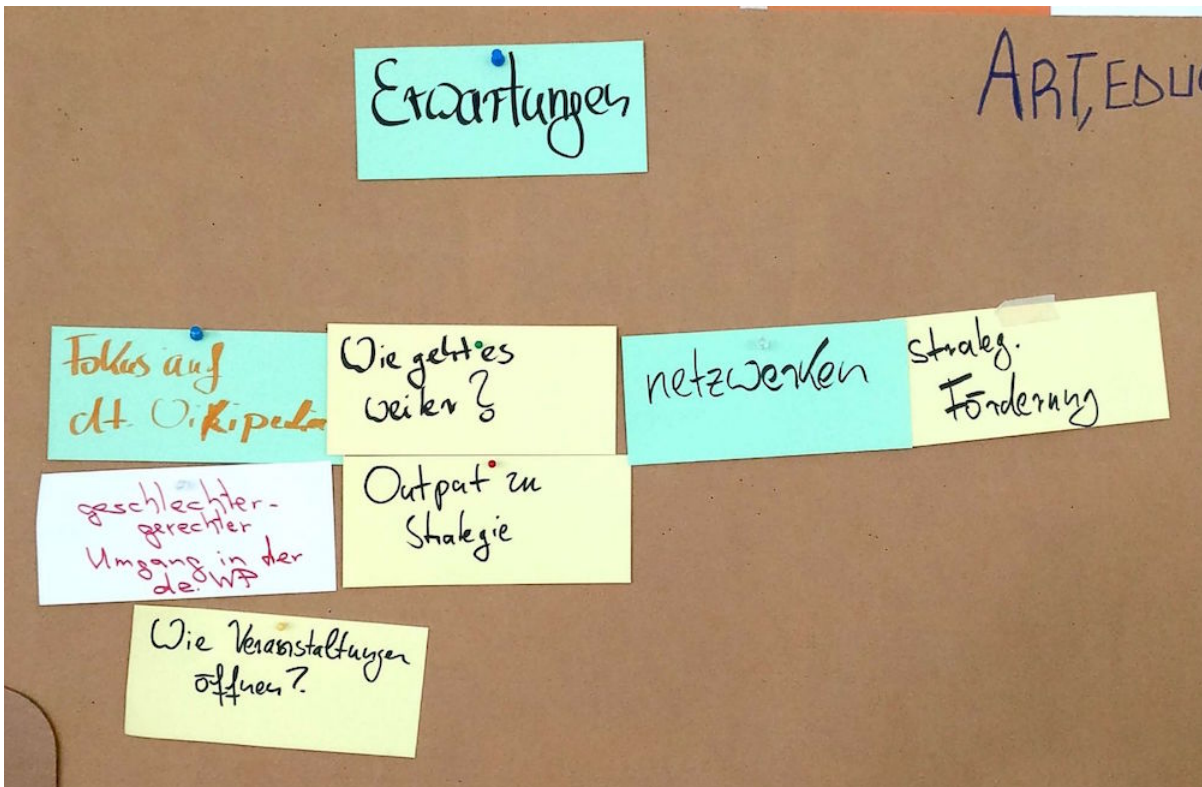 Erwartungen
ART, EDU
Fokus auf
dt. Wikipedia
Wie geht es
weiter?
netzwerken
strateg.
Förderung
geschlechter-
gerechter
Umgang in der
de.WP
Output zu
Strategie
Wie Veranstaltungen
öffnen?